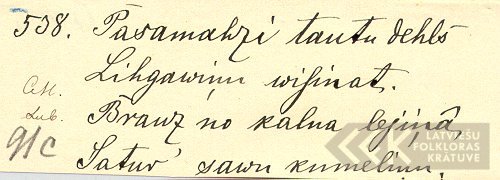 538. Pasamahzi tautu dehls
Lihgawiņu wisinat.
A.H.
Lub.
Brauz no kalna lejinâ,
91c
Satur' sawu kumeliņu.
LATVIEŠU
FOLKLORAS
KRATUVE